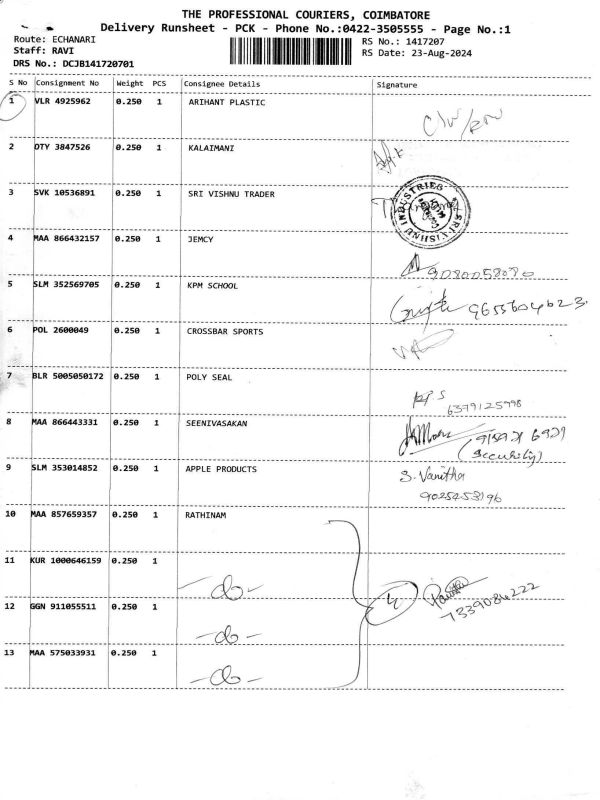 THE PROFESSIONAL COURIERS, COIMBATORE
Delivery Runsheet - PCK - Phone No.:0422-3505555 - Page No.:1
Route: ECHANARI
Staff: RAVI
DRS No.: DCJB141720701
RS No.: 1417207
RS Date: 23-Aug-2024
S No Consignment No Weight PCS Consignee Details Signature
1 VLR 4925962 0.250 1 ARIHANT PLASTIC
2 OTY 3847526 0.250 1 KALAIMANI
3 SVK 10536891 0.250 1 SRI VISHNU TRADER
SRI VISHNU INDUSTRIES
4 MAA 866432157 0.250 1 JEMCY
9080058070
5 SLM 352569705 0.250 1 KPM SCHOOL
9655604623
6 POL 2600049 0.250 1 CROSSBAR SPORTS
7 BLR 5005050172 0.250 1 POLY SEAL
6379125998
8 MAA 866443331 0.250 1 SEENIVASAKAN
(Security)
9 SLM 353014852 0.250 1 APPLE PRODUCTS
S. Vanitha
9025253196
10 MAA 857659357 0.250 1 RATHINAM
11 KUR 1000646159 0.250 1 -do-
7339084222
12 GGN 911055511 0.250 1 -do-
13 MAA 575033931 0.250 1 -do-